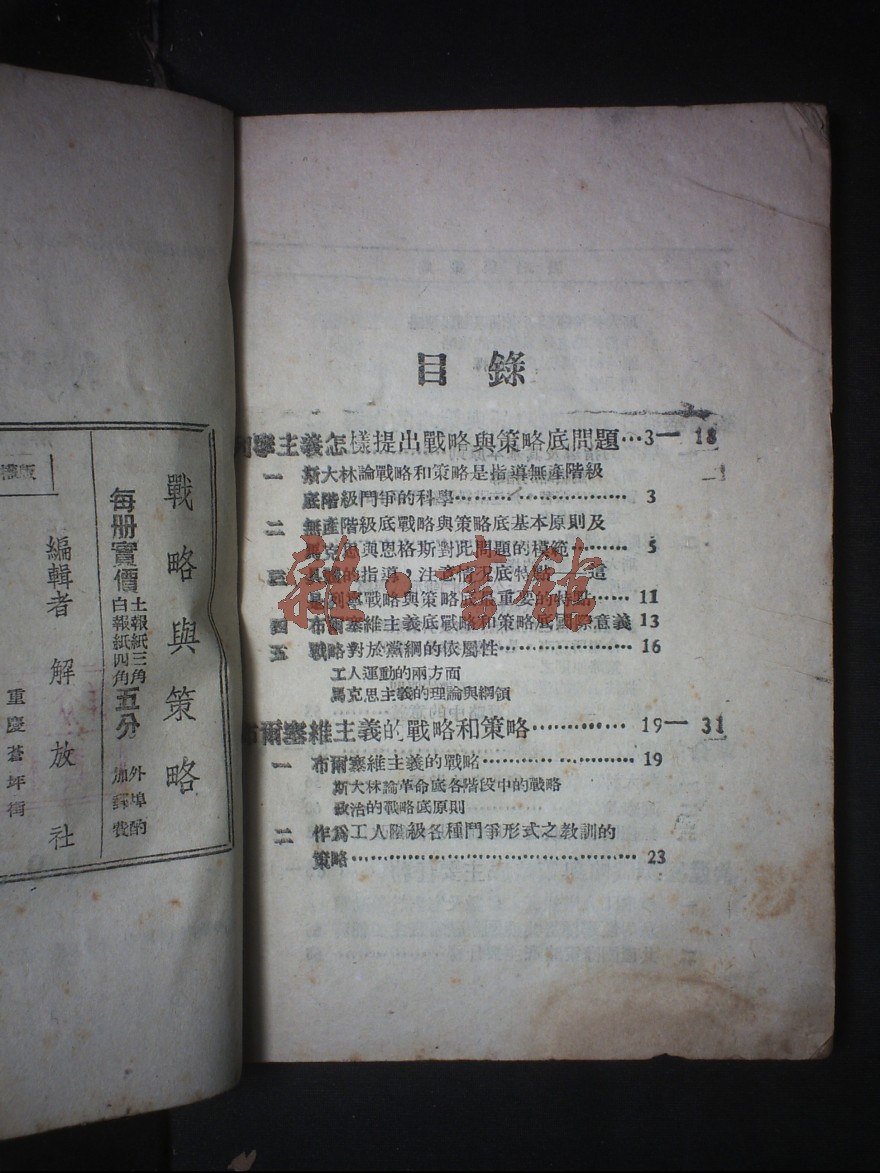 戰略與策略
每册實價
土報紙三角
白報紙四角
五分
外埠酌
加寄費
編輯者 解放社
重慶蒼坪街
目錄
列寧主義怎樣提出戰略與策略底問題…3—18
一 斯大林論戰略和策略是指導無產階級
底階級鬥爭的科學………………………… 3
二 無產階級底戰略與策略底基本原則及
馬克思與恩格斯對此問題的模範……… 5
三 具體的指導，注意情况底特點——這
是列寧戰略與策略底最重要的特點…… 11
四 布爾塞維主義底戰略和策略底國際意義 13
五 戰略對於黨綱的依屬性………………… 16
工人運動的兩方面
馬克思主義的理論與綱領
布爾塞維主義的戰略和策略………… 19—31
一 布爾塞維主義的戰略…………………… 19
斯大林論革命底各階段中的戰略
政治的戰略底原則
二 作爲工人階級各種鬥爭形式之教訓的
策略……………………………………… 23
雜·書館